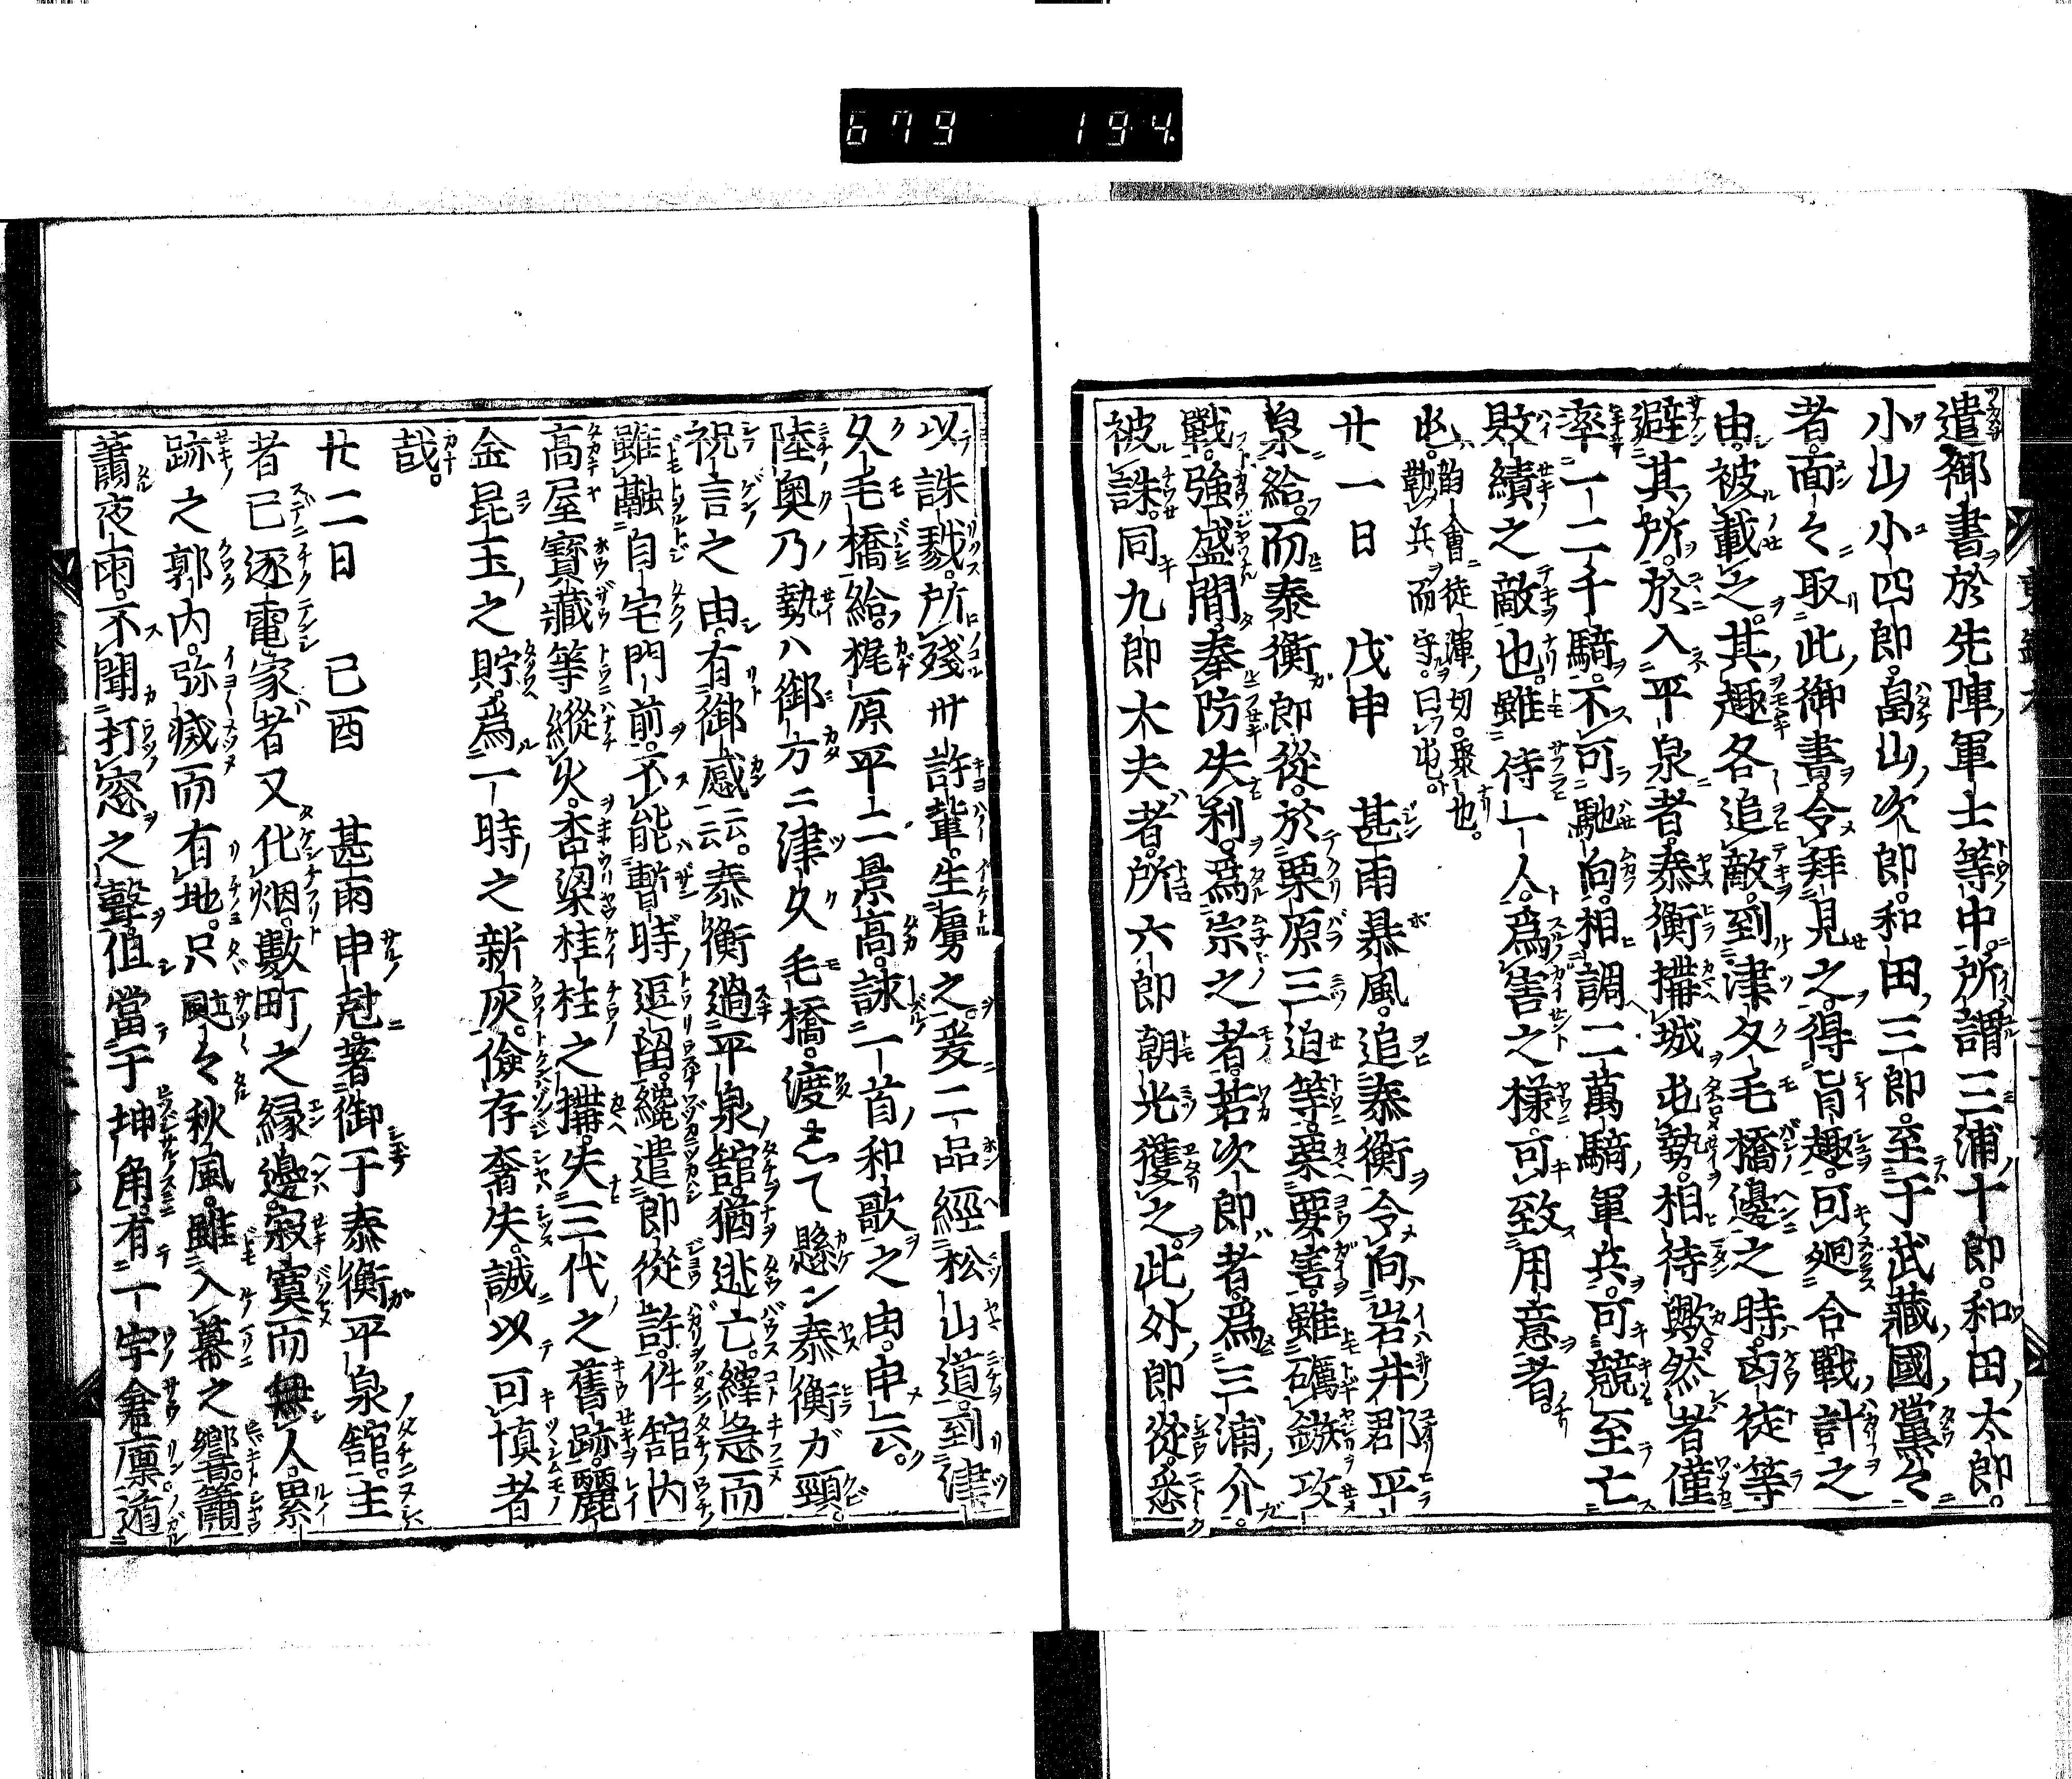 679 194
遣御書於先陣軍士等中。所謂三浦十郎。和田太郎。
小山小四郎。畠山次郎。和田三郎。至于武藏國黨々
者。面々取此御書。令拜見之。得旨趣。可廻合戰計之
由。被載之。其趣各追敵。到津久毛橋邊之時。凶徒等
避其所。於入平泉者。泰衡搆城屯勢。相待歟。然者僅
率一二千騎。不可馳向。相調二萬騎軍兵。可競至。亡
敗績之敵也。雖侍一人。爲害之樣。可致用意者。
屯。韵會。徒渾切。聚也。勒兵而守。曰屯。
廿一日 戊申 甚雨暴風。追泰衡令向岩井郡平
泉給。而泰衡郎從。於栗原三迫等。要害。雖礪鏃攻
戰。強盛間。奉防失利。爲宗之者。若次郎者。爲三浦介。
被誅。同九郎大夫者。所六郎朝光獲之。此外郎從。悉
以誅戮。所殘卅許輩。生虜之。爰二品經松山道。到津
久毛橋給。梶原平二景高。詠一首和歌之由。申云。
陸奧乃勢ハ御方二津久毛橋。渡志て懸ン泰衡ガ頸。
祝言之由。有御感云云。泰衡過平泉舘。猶逃亡。縡急而
雖融自宅門前。不能暫時逗留。纔遣郎從許。件舘内
高屋寶藏等縱火。杏梁桂柱之搆。失三代之舊跡。麗
金昆玉之貯。爲一時之新灰。儉存奢失。誠以可愼者
哉。
廿二日 己酉 甚雨申尅著御于泰衡平泉舘。主
者已逐電。家者又化烟。數町之縁邊。寂寞而無人。累
跡之郭内。弥滅而有地。只颯々秋風。雖入幕之響。簫
蕭夜雨。不聞打窓之聲。但當于坤角。有一宇倉廩遁